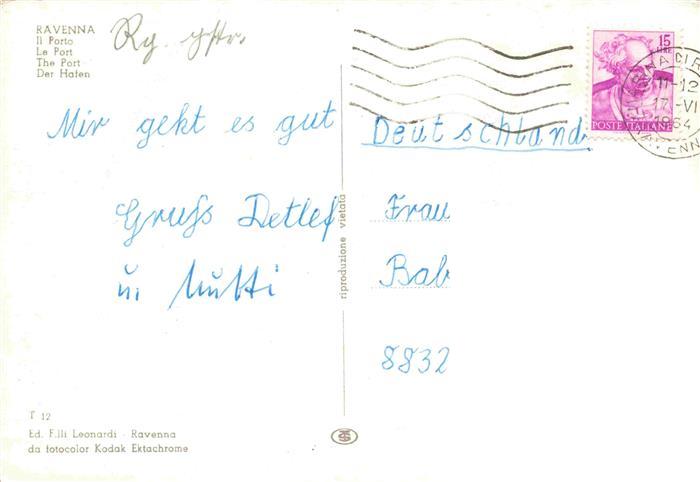 RAVENNA
Il Porto
Le Port
The Port
Der Hafen
15
LIRE
POSTE ITALIANE
11-12
17-VI
1964
Mir geht es gut
Gruß Detlef
u. Mutti
Deutschland.
Frau
Bab
8832
riproduzione vietata
T 12
Ed. F.lli Leonardi - Ravenna
da fotocolor Kodak Ektachrome